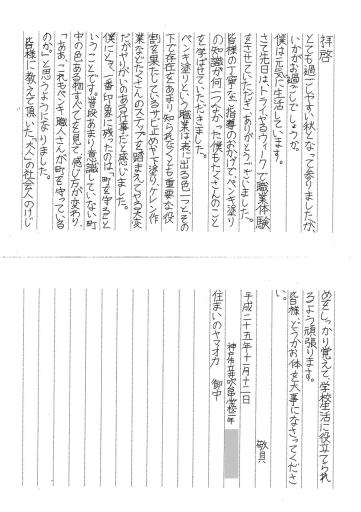 拝啓
とても過ごしやすい秋となって参りましたが、
いかがお過ごしでしょうか。
僕は元気に生活しています。
さて先日はトライやるウィークで職業体験
をさせていただきありがとうございました。
皆様の丁寧なご指導のおかげで、ペンキ塗り
の知識が何一つなかった僕もたくさんのこと
を学ばせていただきました。
ペンキ塗りという職業は表に出る色一つとその
下で存在をあまり知られなくとも重要な役
割を果たしているサビ止めや下塗り、ケレン作
業などたくさんのステップを踏まえてやる大変
だがやりがいのある仕事だと感じました。
僕にとって一番印象に残ったのは、町を守ると
いうことです。普段あまり意識していない町
中の色ある物すべてを見て感じ方が変わり、
「ああ、これもペンキ職人さんが町を守っている
のか」と思うようになりました。
皆様に教えて頂いた“大人”の社会人のけじ
めをしっかり覚えて、学校生活に役立てられ
るよう頑張ります。
皆様、どうかお体を大事になさってくださ
い。
敬具
平成二十五年十一月十二日
神戸市立井吹台中学校二年
住まいのヤマオカ 御中